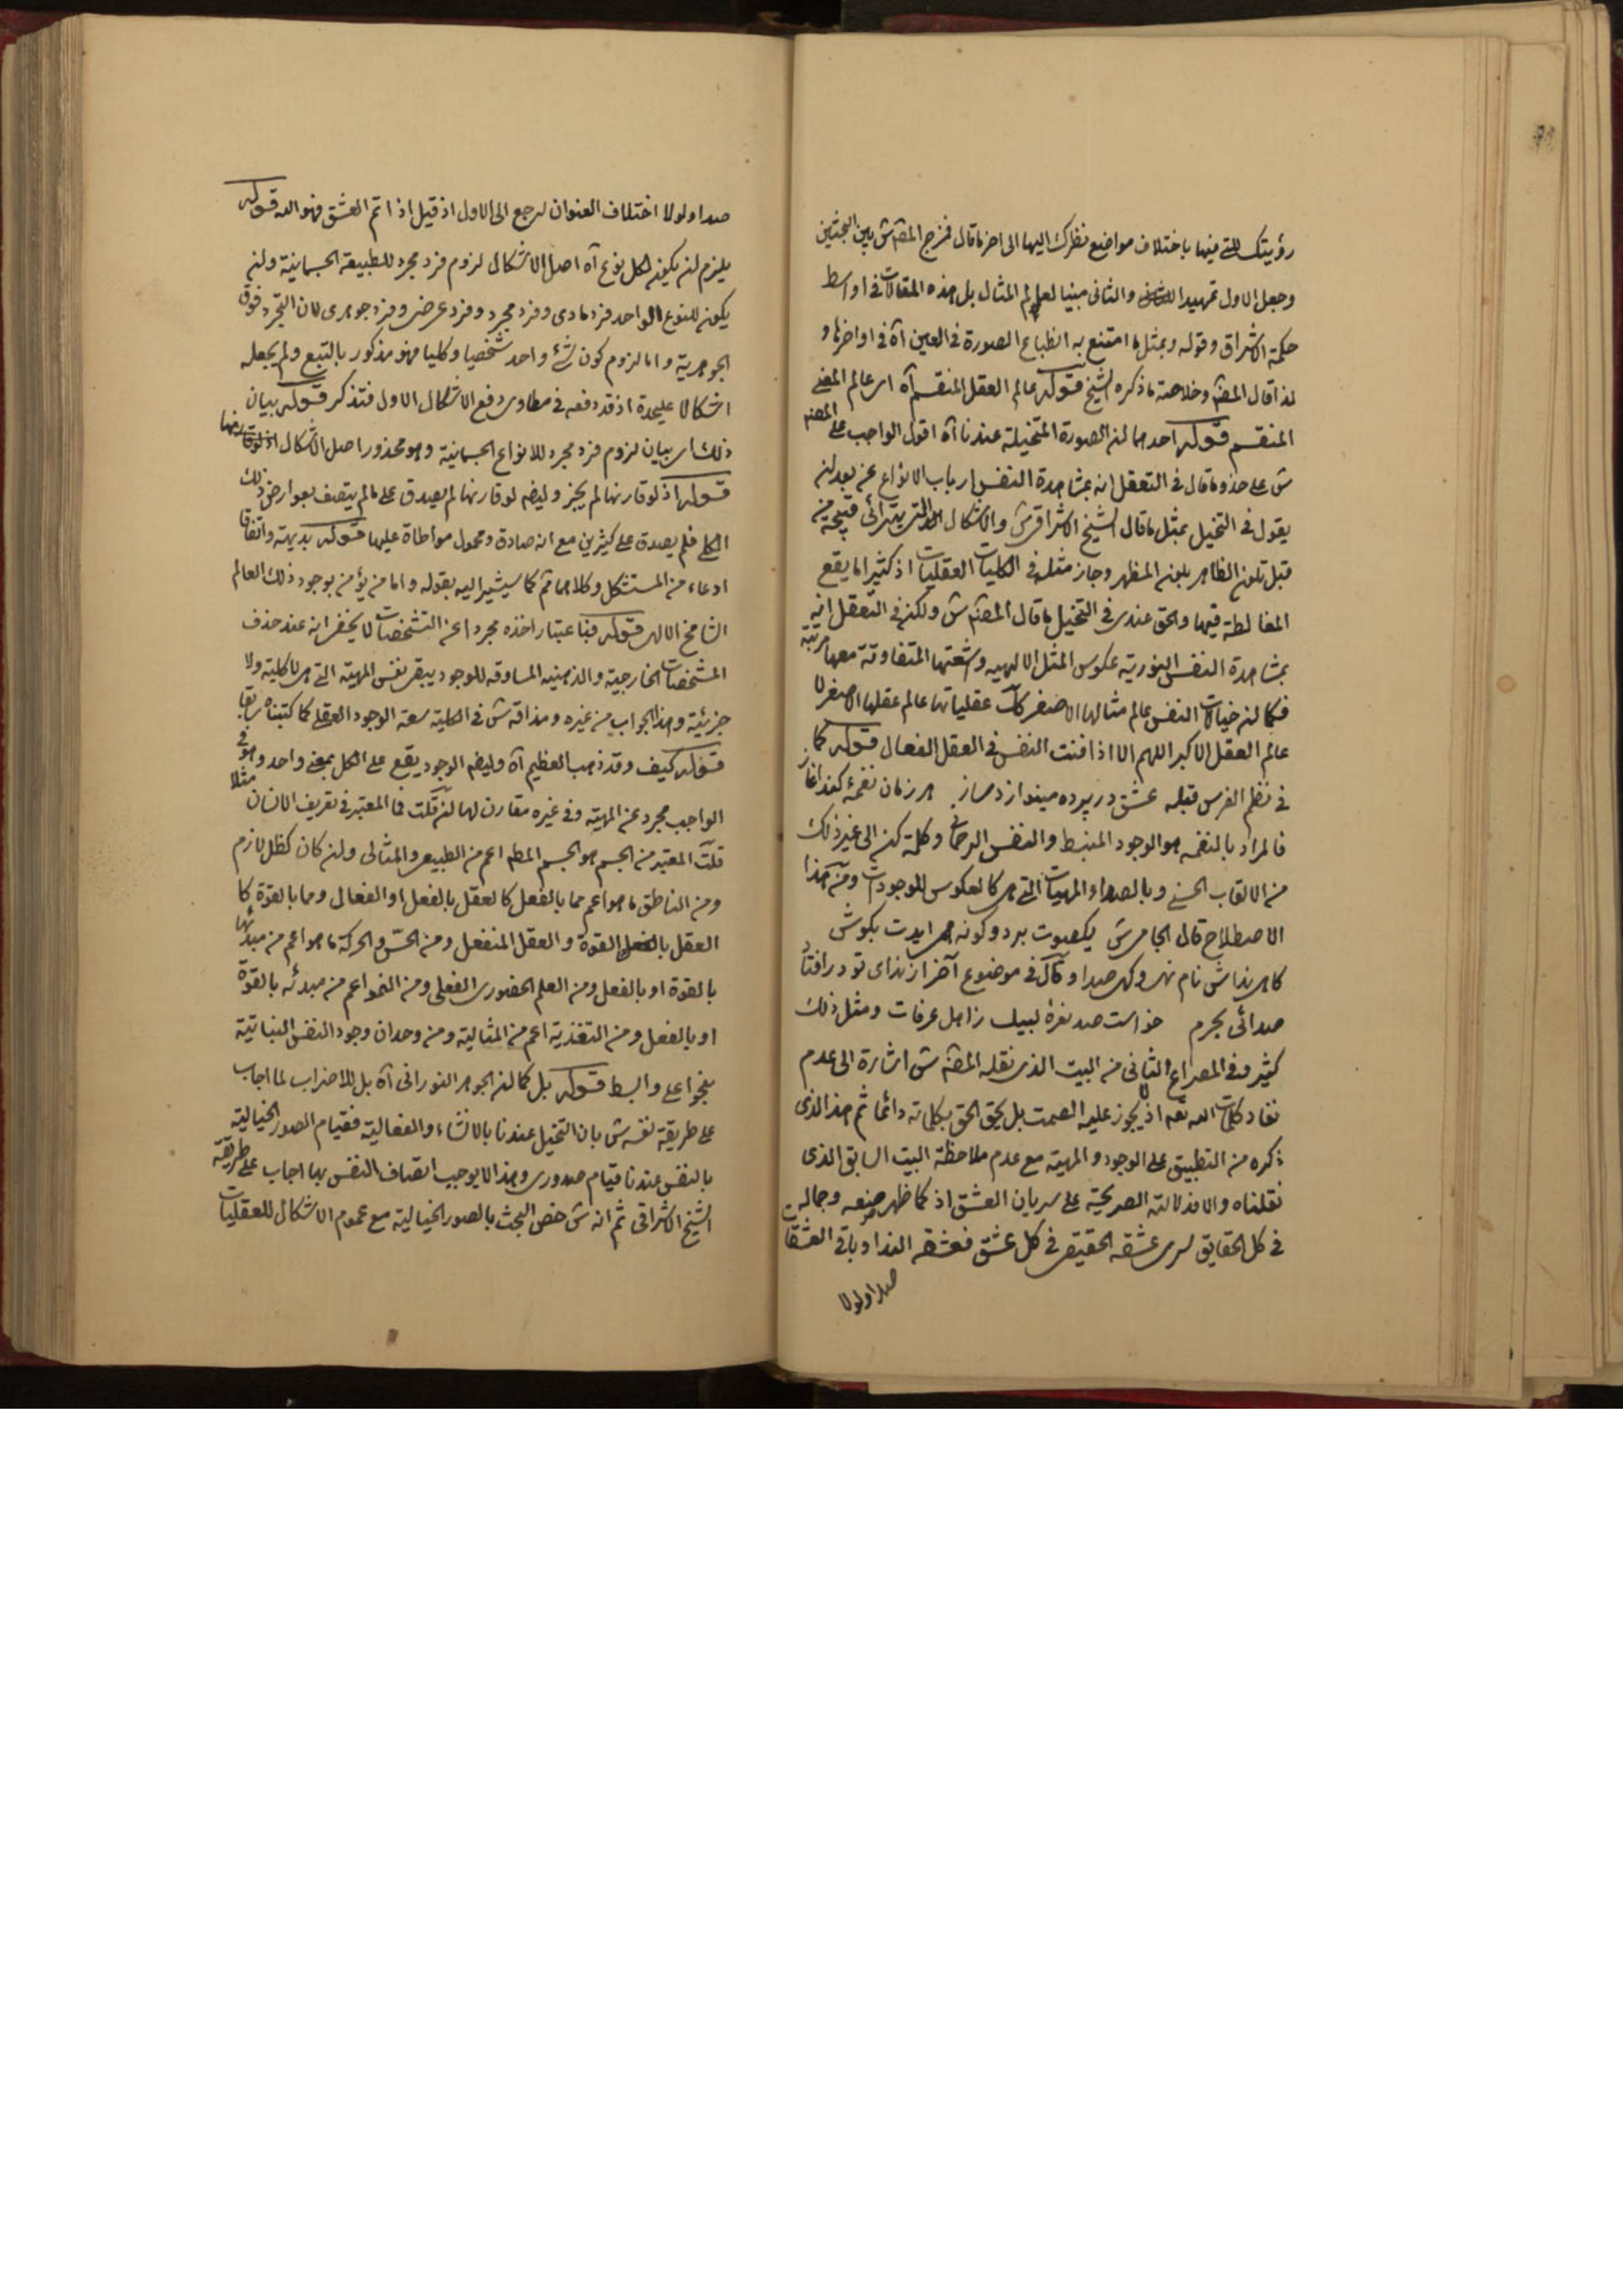 رؤيتك التى فيها باختلاف مواضع نظرك اليها الى اخر ما قال فمزج المصنف ش بين البحثين
وجعل الاول تمهيدا والثانى مبنيا لعالم المثال بل هذه المقالات فى اواسط
حكمة الاشراق وقوله وبمثل ما امتنع به انطباع الصورة فى العين آه فى اواخرها و
لذا قال المصنف وخلاصة ما ذكره الشيخ قوله عالم العقل المنقسم آه اى عالم المعنى
المنقسم قوله احدهما ان الصورة المتخيلة عندنا آه اقول الواجب على المصنف
ش على حذو ما قال فى التعقل انه بمشاهدة النفس ارباب الانواع عن بعد ان
يقول فى التخيل بمثل ما قال الشيخ الاشراقى ش والاشكال التى يترائى قبيحة من
قبل تلون الظاهر بلون المظهر وجاز مثله فى الكليات العقليات اذ كثيرا ما يقع
المغالطة فيها والحق عندى فى التخيل ما قال المصنف ش ولكن فى التعقل انه
بمشاهدة النفس النورية عكوس المثل الالهيه واشعتها المتفاوتة معها مرتبة
فكما ان خيالات النفس عالم مثالها الاصغر كك عقلياتها عالم عقلها الاصغر لا
عالم العقل الاكبر اللهم الا اذا فنت النفس فى العقل الفعال قوله كما
فى نظم الفرس قبله عشق در پرده مينوازد ساز هر زمان نغمۀ كند اغاز
فالمراد بالنغمه هو الوجود المنبسط والنفس الرحمانى وكلمة كن الى غير ذلك
من الالقاب الحسنى وبالصداء المهيات التى هى كالعكوس للوجودات ومن هذا
الاصطلاح قال الجامى ش يكصوت بر دو گونه همى ايدت بگوش
گاهى نداش نام نهى و گهى صدا وقال فى موضوع آخر از نداى تو در افتاد
صدائى بحرم خواست صد نعرۀ لبيك ز اهل عرفات ومثل ذلك
كثير وفى المصراع الثانى من البيت الذى نقله المصنف ش اشارة الى عدم
نفاد كلمات الله تعه اذ لا يجوز عليه الصمت بل يحق الحق بكلماته دائما ثم هذا الذى
ذكره من التطبيق على الوجود والمهية مع عدم ملاحظة البيت السابق الذى
نقلناه والا فدلالته الصريحة على سريان العشق اذ كما ظهر صنعه وجماله
فى كل الحقايق سرى عشقه الحقيقى فى كل عشق فعشقه الندا وباقى العشقات
صدا ولولا
صدا ولولا اختلاف العنوان لرجع الى الاول اذ قيل اذا تم العشق فهو الله قوله
يلزم ان يكون لكل نوع آه اصل الاشكال لزوم فرد مجرد للطبيعة الجسمانية وان
يكون للنوع الواحد فرد مادى وفرد مجرد وفرد عرضى وفرد جوهرى لان التجرد فوق
الجوهرية واما لزوم كون شئ واحد شخصيا وكليا فهو مذكور بالتبع ولم يجعله
اشكالا عليحدة اذ قد دفعه فى مطاوى دفع الاشكال الاول فتذكر قوله بيان
ذلك اى بيان لزوم فرد مجرد للانواع الجسمانية وهو محذور اصل الاشكال
قوله اذ لو قارنها لم يجز وايضه لو قارنها لم يصدق على ما لم يتصف بعوارض ذلك
الكلى فلم يصدق على كثيرين مع انه صادق ومحمول مواطاة عليها قوله بديهة واتفاقا
ادعاء من المستشكل وكلاهما ثم كما سيشير اليه بقوله واما من يؤمن بوجود ذلك العالم
الشامخ الالهى قوله فباعتبار اخذه مجردا عن التشخصات لا يخفى انه عند حذف
المشخصات الخارجية والذهنيه المساوقه للوجود يبقى نفس المهية التى هى لا كلية ولا
جزئية وهذا الجواب من غيره ومذاقه ش فى الكلية سعة الوجود العقلى كما كتبناه سابقا
قوله كيف وقد ذهب العظيم آه وايضه الوجود يقع على الكل بمعنى واحد وهو فى
الواجب مجرد عن المهية وفى غيره مقارن لها ان قلت فما المعتبر فى تعريف الانسان مثلا
قلت المعتبر من الجسم هو الجسم المطم اعم من الطبيعى والمثالى وان كان كظل لازم
ومن الناطق ما هو اعم مما بالفعل كالعقل بالفعل او الفعال ومما بالقوة كا
العقل بالقوة والعقل المنفعل ومن الحس والحركة ما هو اعم من مبدئها
بالقوة او بالفعل ومن العلم الحضورى الفعلى ومن النمو اعم من مبدئه بالقوة
او بالفعل ومن التغذية اعم من المثالية ومن وحدان وجود النفس النباتية
بنحو اعلى وابسط قوله بل كما ان الجوهر النورانى آه بل للاضراب لما اجاب
على طريقة نفسه ش بان التخيل عندنا بالانشاء والفعالية فقيام الصور الخيالية
بالنفس عندنا قيام صدورى وهذا لا يوجب اتصاف النفس بها اجاب على طريقة
الشيخ الاشراقى ثم انه ش خص البحث بالصور الخيالية مع عموم الاشكال للعقليات